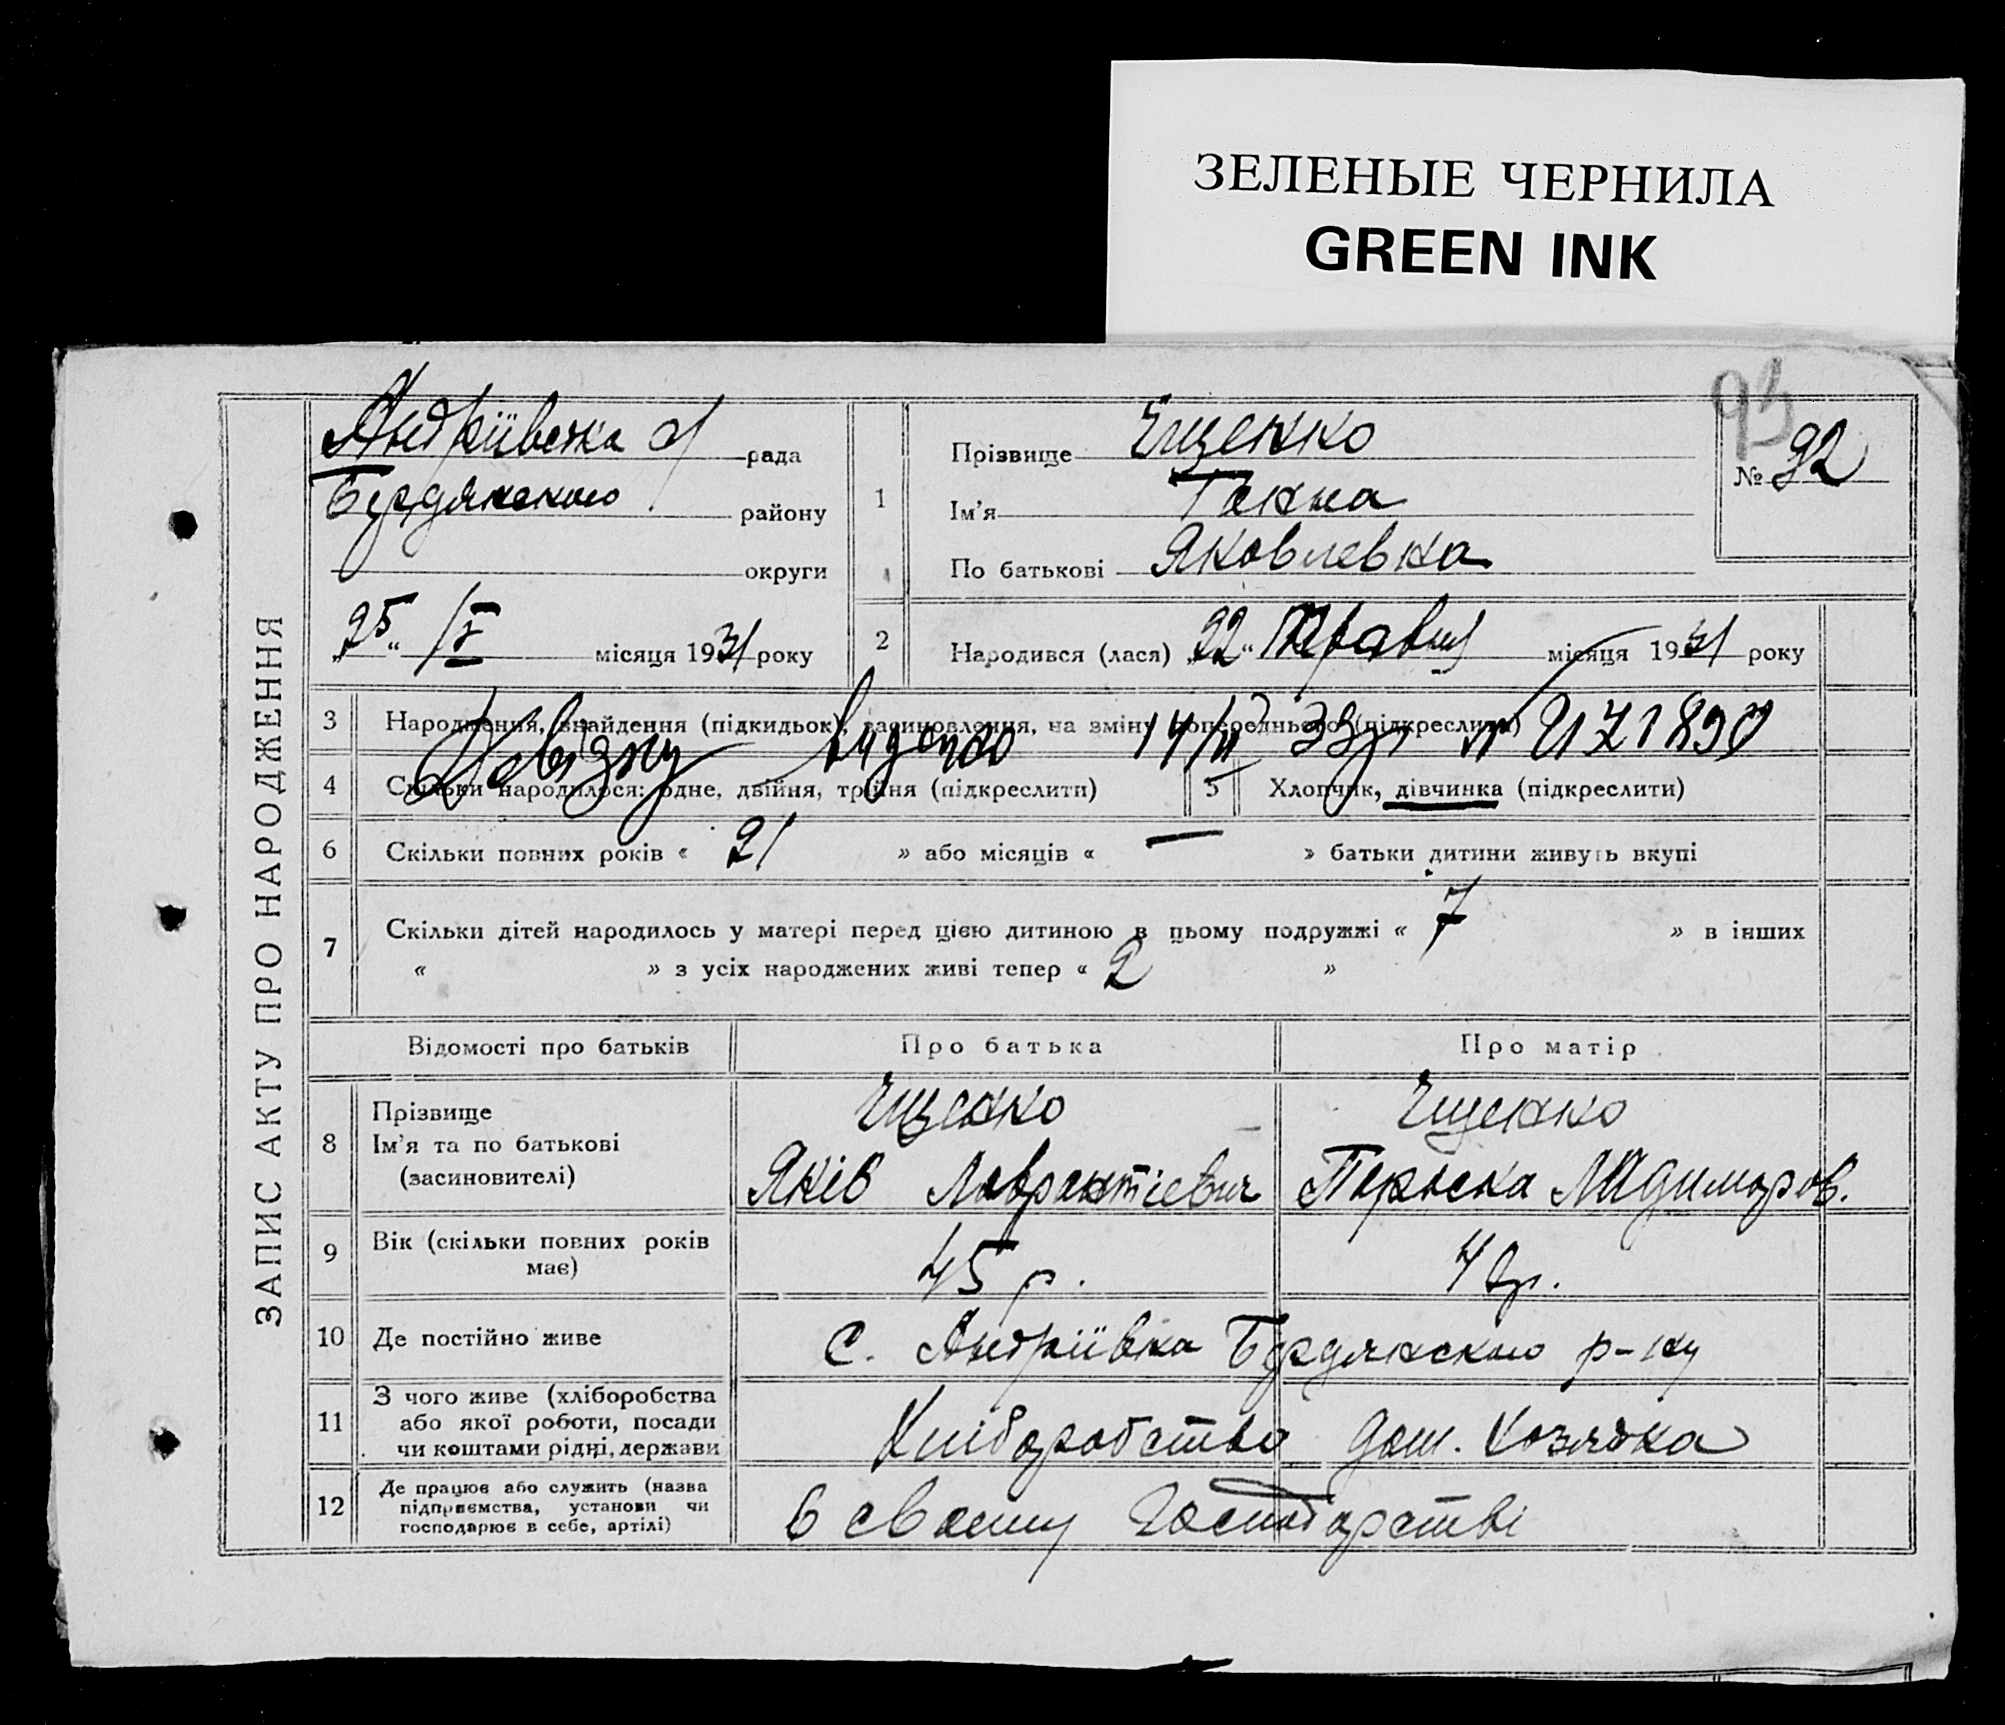 ЗЕЛЕНЫЕ ЧЕРНИЛА
GREEN INK
93
№ 92
ЗАПИС АКТУ ПРО НАРОДЖЕННЯ
Андріівська с/ рада
Бердянського району
округи
„25“ /V місяця 1931 року
1
Прізвище Іщенко
Ім'я Ганна
По батькові Яковлевна
2 Народився (лася) „22“ Травня місяця 1931 року
3 Народження, знайдення (підкидьок), засиновлення, на зміну попереднього (підкреслити)
Довідку видано 14/II 33р № 2171890
4 Скільки народилося: одне, двійня, трійня (підкреслити) 5 Хлопчик, дівчинка (підкреслити)
6 Скільки повних років « 21 » або місяців « — » батьки дитини живуть вкупі
7 Скільки дітей народилось у матері перед цією дитиною в цьому подружжі « 7 » в інших
« » з усіх народжених живі тепер « 2 »
Відомості про батьків Про батька Про матір
8 Прізвище Іщенко Іщенко
Ім'я та по батькові
(засиновителі) Яків Лаврантієвич Параска
9 Вік (скільки повних років має) 45 р. 42р.
10 Де постійно живе с. Андріївка Бердянського р-ну
11 З чого живе (хліборобства
або якої роботи, посади
чи коштами рідні, держави Хліборобство дом. хозяйка
12 Де працює або служить (назва
підприємства, установи чи
господарює в себе, артілі) в своєму господарстві